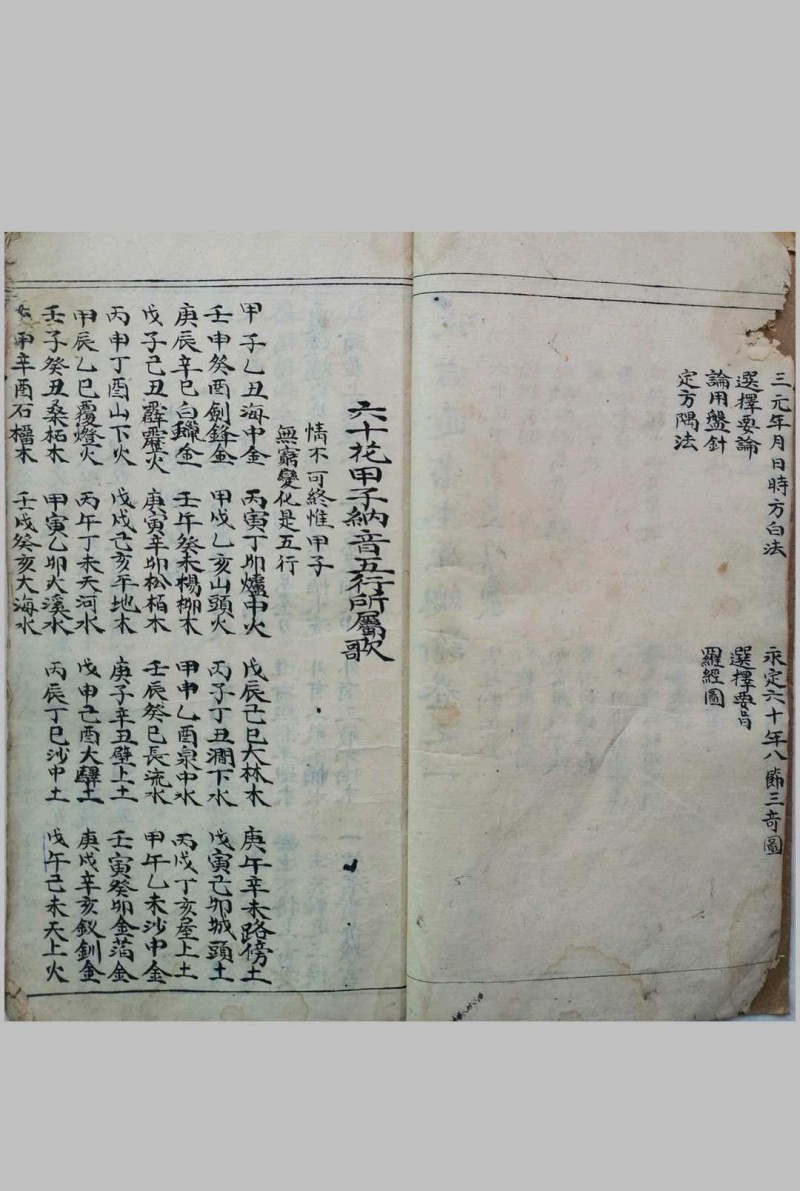 三元年月日時方白法
永定六十年八節三奇圖
選擇要論
選擇要旨
論用盤針
羅經圖
定方隅法
六十花甲子納音五行所屬歌
情不可終惟甲子
無窮變化是五行
甲子乙丑海中金 丙寅丁卯爐中火 戊辰己巳大林木 庚午辛未路傍土
壬申癸酉劍鋒金 甲戌乙亥山頭火 丙子丁丑澗下水 戊寅己卯城頭土
庚辰辛巳白鑞金 壬午癸未楊柳木 甲申乙酉泉中水 丙戌丁亥屋上土
戊子己丑霹靂火 庚寅辛卯松柏木 壬辰癸巳長流水 甲午乙未沙中金
丙申丁酉山下火 戊戌己亥平地木 庚子辛丑壁上土 壬寅癸卯金箔金
甲辰乙巳覆燈火 丙午丁未天河水 戊申己酉大驛土 庚戌辛亥釵釧金
壬子癸丑桑柘木 甲寅乙卯大溪水 丙辰丁巳沙中土 戊午己未天上火
申辛酉石榴木 壬戌癸亥大海水